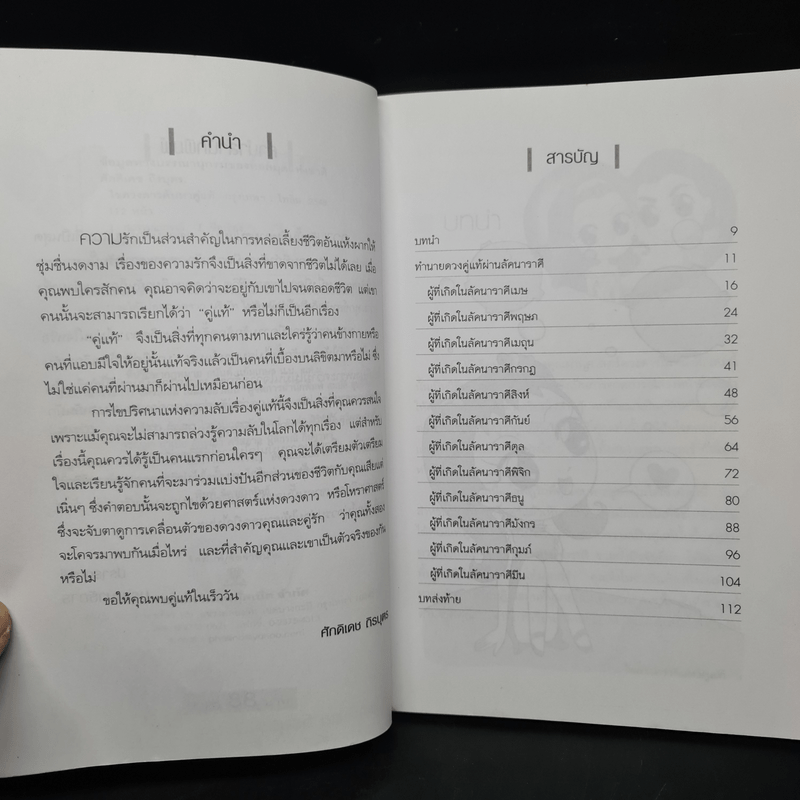 คำนำ
ความรักเป็นส่วนสำคัญในการหล่อเลี้ยงชีวิตอันแห้งผากให้
ชุ่มชื่นงดงาม เรื่องของความรักจึงเป็นสิ่งที่ขาดจากชีวิตไม่ได้เลย เมื่อ
คุณพบใครสักคน คุณอาจคิดว่าจะอยู่กับเขาไปจนตลอดชีวิต แต่เขา
คนนั้นจะสามารถเรียกได้ว่า "คู่แท้" หรือไม่ก็เป็นอีกเรื่อง
"คู่แท้" จึงเป็นสิ่งที่ทุกคนตามหาและใคร่รู้ว่าคนข้างกายหรือ
คนที่แอบมีใจให้อยู่นั้นแท้จริงแล้วเป็นคนที่เบื้องบนลิขิตมาหรือไม่ ซึ่ง
ไม่ใช่แค่คนที่ผ่านมาก็ผ่านไปเหมือนก่อน
การไขปริศนาแห่งความลับเรื่องคู่แท้นี้จึงเป็นสิ่งที่คุณควรสนใจ
เพราะแม้คุณจะไม่สามารถล่วงรู้ความลับในโลกได้ทุกเรื่อง แต่สำหรับ
เรื่องนี้คุณควรได้รู้เป็นคนแรกก่อนใครๆ คุณจะได้เตรียมตัวเตรียม
ใจและเรียนรู้จักคนที่จะมาร่วมแบ่งปันอีกส่วนของชีวิตกับคุณเสียแต่
เนิ่นๆ ซึ่งคำตอบนั้นจะถูกไขด้วยศาสตร์แห่งดวงดาว หรือโหราศาสตร์
ซึ่งจะจับตาดูการเคลื่อนตัวของดวงดาวคุณและคู่รัก ว่าคุณทั้งสอง
จะโคจรมาพบกันเมื่อไหร่ และที่สำคัญคุณและเขาเป็นตัวจริงของกัน
หรือไม่
ขอให้คุณพบคู่แท้ในเร็ววัน
ศักดิเดช ถิรบุตร
สารบัญ
บทนำ 9
ทำนายดวงคู่แท้ผ่านลัคนาราศี 11
ผู้ที่เกิดในลัคนาราศีเมษ 16
ผู้ที่เกิดในลัคนาราศีพฤษภ 24
ผู้ที่เกิดในลัคนาราศีเมถุน 32
ผู้ที่เกิดในลัคนาราศีกรกฎ 41
ผู้ที่เกิดในลัคนาราศีสิงห์ 48
ผู้ที่เกิดในลัคนาราศีกันย์ 56
ผู้ที่เกิดในลัคนาราศีตุล 64
ผู้ที่เกิดในลัคนาราศีพิจิก 72
ผู้ที่เกิดในลัคนาราศีธนู 80
ผู้ที่เกิดในลัคนาราศีมังกร 88
ผู้ที่เกิดในลัคนาราศีกุมภ์ 96
ผู้ที่เกิดในลัคนาราศีมีน 104
บทส่งท้าย 112